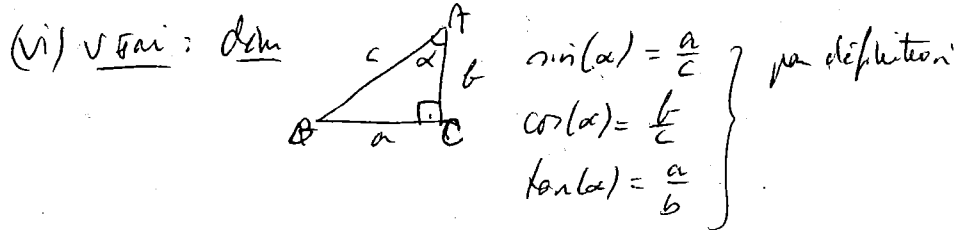 (vi) vrai : dém
A
c α b
B a C
sin(α) = a/c
cos(α) = b/c
tan(α) = a/b
} par définition